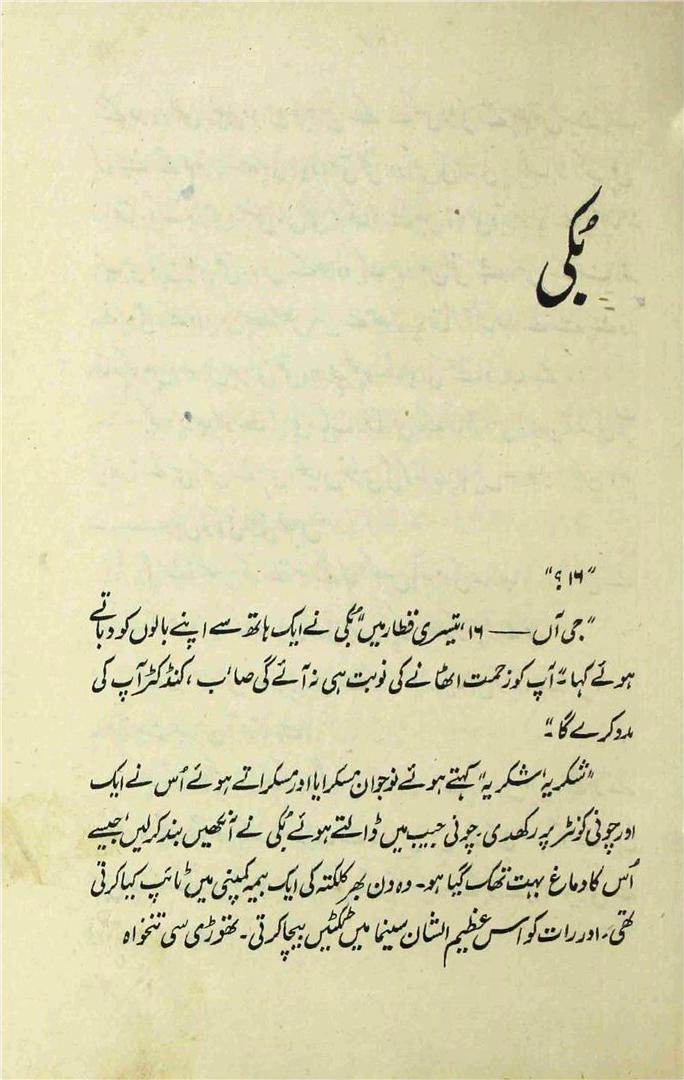 بُکی
"۱۶ ؟"
"جی آں —— ۱۶، تیسری قطار میں" بُکی نے ایک ہاتھ سے اپنے بالوں کو دباتے
ہوئے کہا۔ "آپ کو زحمت اٹھانے کی نوبت ہی نہ آئے گی صائب، کنڈکٹر آپ کی
مدد کرے گا۔"
"شکریہ، شکریہ" کہتے ہوئے نوجوان مسکرایا اور مسکراتے ہوئے اُس نے ایک
اور چونی کونٹر پر رکھدی۔ چونی جیب میں ڈالتے ہوئے بُکی نے آنکھیں بند کر لیں، جیسے
اُس کا دماغ بہت تھک گیا ہو۔ وہ دن بھر کلکتہ کی ایک بیمہ کمپنی میں ٹائپ کیا کرتی
تھی۔ اور رات کو اس عظیم الشان سینما میں ٹکٹیں بیچا کرتی۔ تھوڑی سی تنخواہ